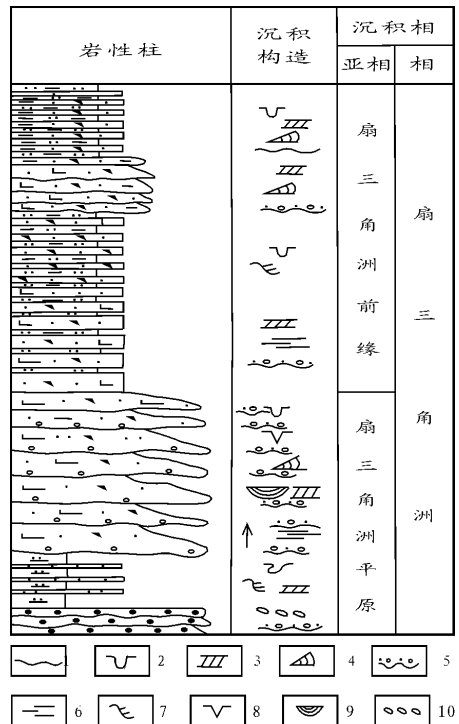 岩性柱
沉积构造
沉积相
亚相
相
扇三角洲前缘
扇三角洲平原
扇三角洲
1
2
3
4
5
6
7
8
9
10